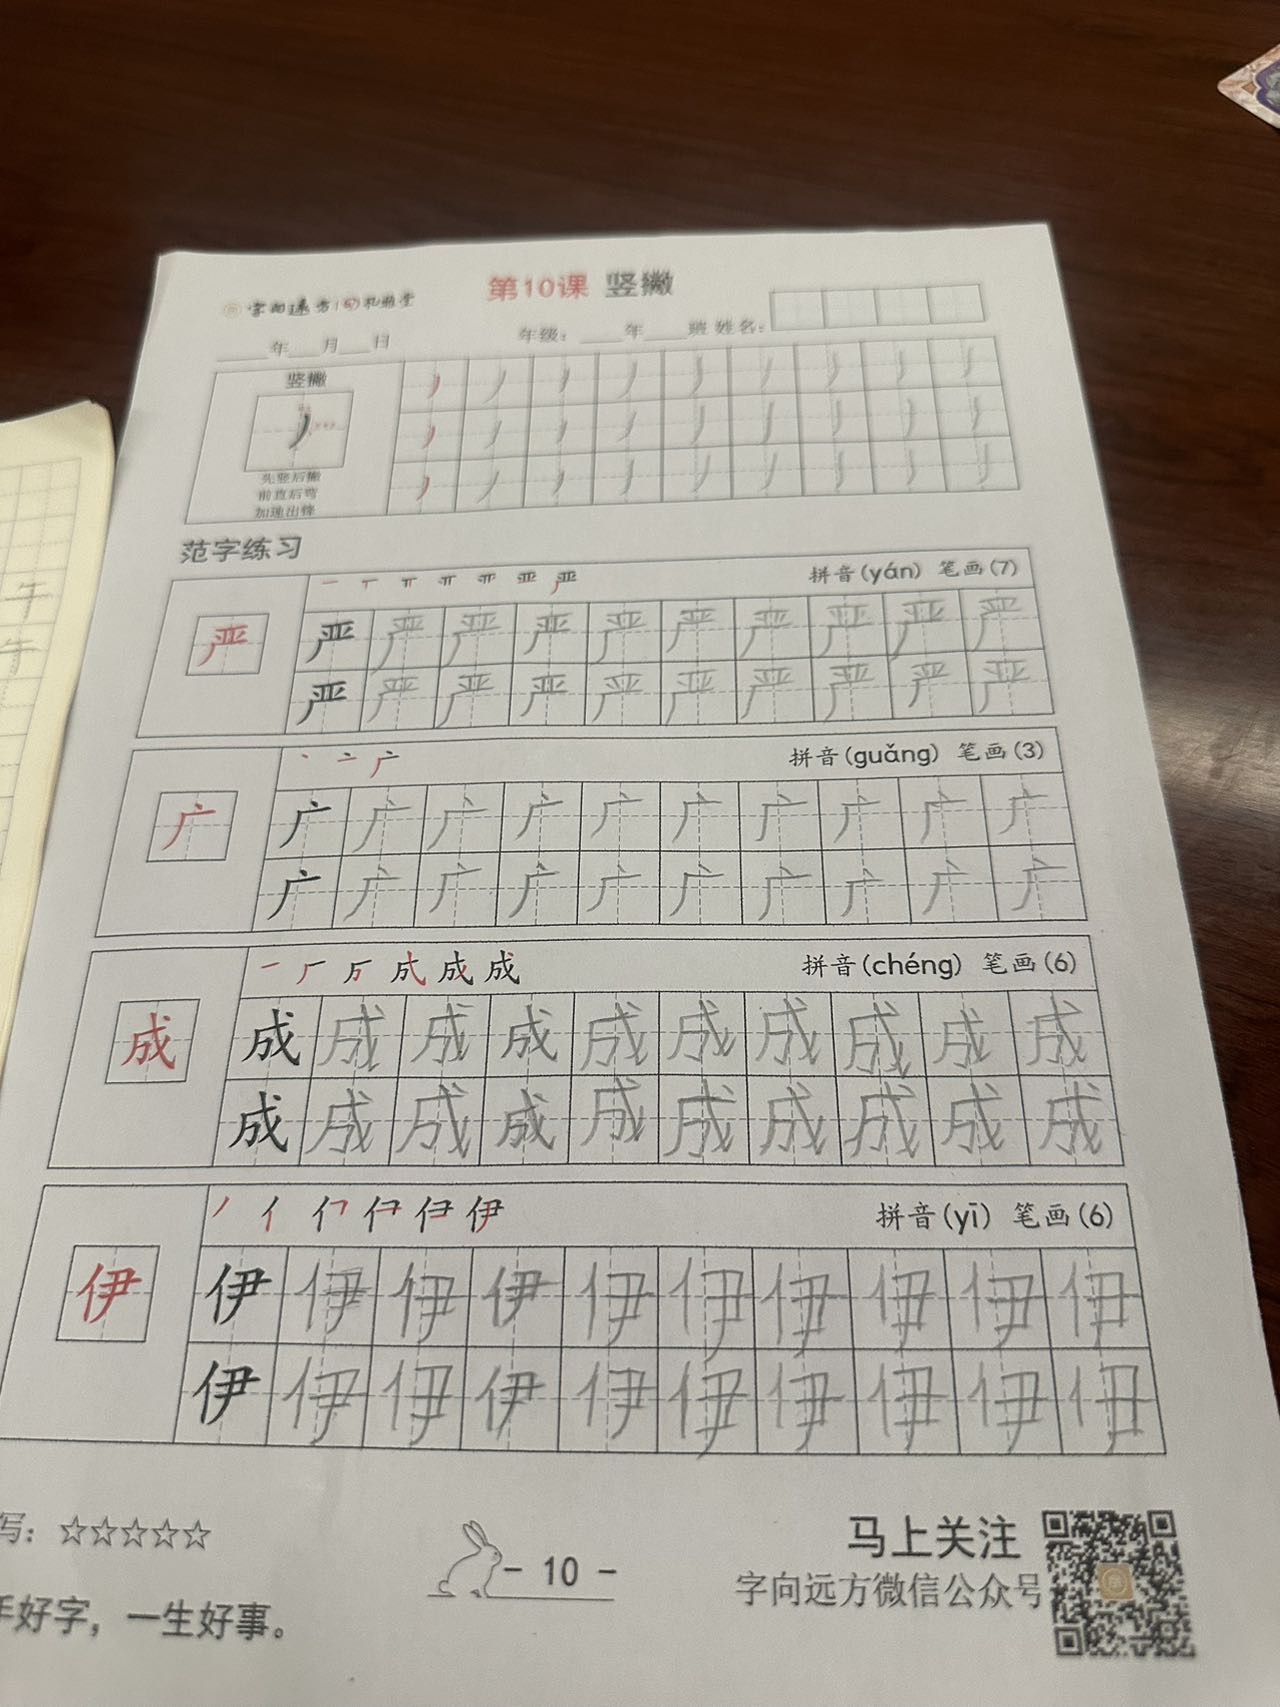 第10课 竖撇
字向远方
___年___月___日 年级：___年___班 姓名：
竖撇
先竖后撇
前直后弯
加速出锋
范字练习
拼音(yán) 笔画(7)
严 严 严 严 严 严 严 严 严 严 严
严 严 严 严 严 严 严 严 严 严
拼音(guǎng) 笔画(3)
广 广 广 广 广 广 广 广 广 广 广
广 广 广 广 广 广 广 广 广 广
拼音(chéng) 笔画(6)
成 成 成 成 成 成 成 成 成 成 成
成 成 成 成 成 成 成 成 成 成
拼音(yī) 笔画(6)
伊 伊 伊 伊 伊 伊 伊 伊 伊 伊 伊
伊 伊 伊 伊 伊 伊 伊 伊 伊 伊
写：☆☆☆☆☆
手好字，一生好事。
- 10 -
马上关注
字向远方微信公众号
午
午